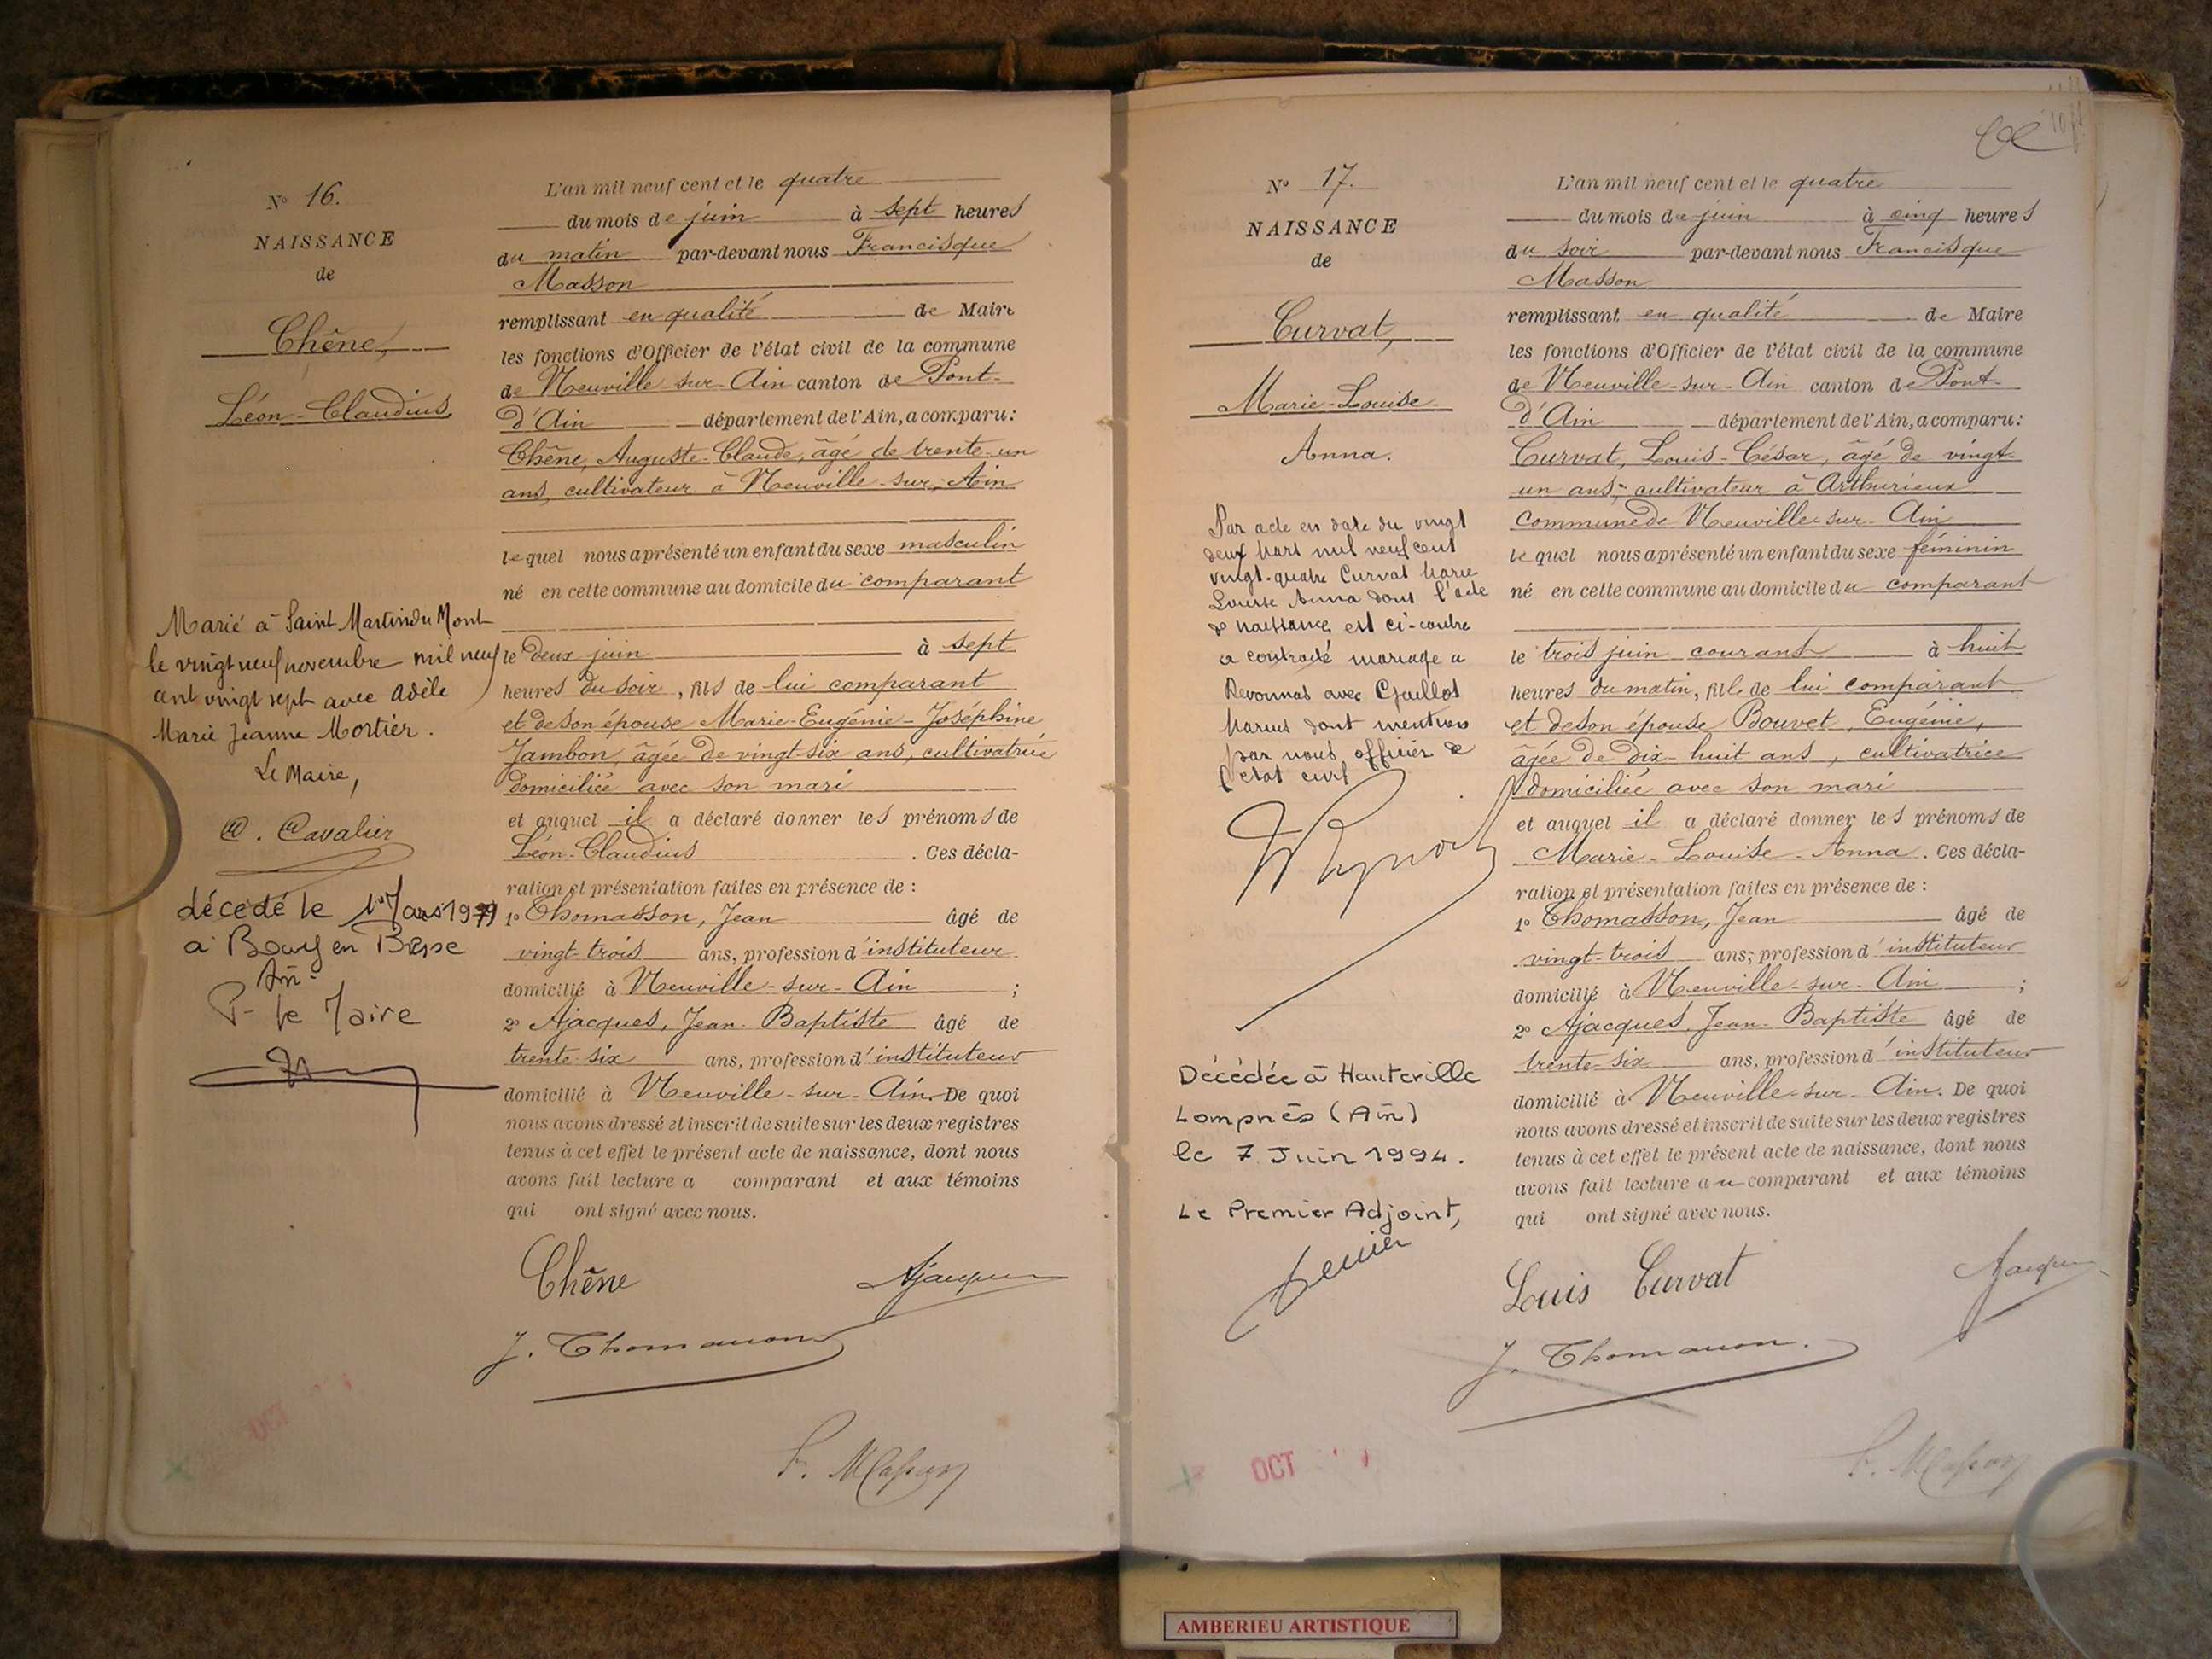 N° 16.
NAISSANCE
de
Chêne,
Léon-Claudius
Marié à Saint Martin du Mont
le vingt neuf novembre mil neuf
cent vingt sept avec Adèle
Marie Jeanne Mortier.
Le Maire,
Cavalier
décédé le 1er Mars 1979
à Bourg en Bresse
Ain
P. le Maire
L'an mil neuf cent et le quatre
du mois de juin à sept heures
du matin par-devant nous Francisque
Masson
remplissant en qualité de Maire
les fonctions d'Officier de l'état civil de la commune
de Neuville-sur-Ain canton de Pont-
d'Ain département de l'Ain, a comparu:
Chêne, Auguste-Claude, âgé de trente-un
ans, cultivateur à Neuville-sur-Ain
lequel nous a présenté un enfant du sexe masculin
né en cette commune au domicile du comparant
le deux juin à sept
heures du soir, fils de lui comparant
et de son épouse Marie-Eugénie-Joséphine
Jambon, âgée de vingt-six ans, cultivatrice
domiciliée avec son mari
et auquel il a déclaré donner les prénoms de
Léon-Claudius. Ces décla-
ration et présentation faites en présence de :
1° Thomasson, Jean âgé de
vingt-trois ans, profession d'instituteur
domicilié à Neuville-sur-Ain ;
2° Ajacques, Jean-Baptiste âgé de
trente-six ans, profession d'instituteur
domicilié à Neuville-sur-Ain. De quoi
nous avons dressé et inscrit de suite sur les deux registres
tenus à cet effet le présent acte de naissance, dont nous
avons fait lecture a comparant et aux témoins
qui ont signé avec nous.
Chêne Ajacques
J. Thomasson
F. Masson
OCT
N° 17.
NAISSANCE
de
Curvat,
Marie-Louise
Anna.
Par acte en date du vingt
deux Mars mil neuf cent
vingt-quatre Curvat Marie
Louise Anna dont l'acte
de naissance est ci-contre
a contracté mariage a
Revonnas avec
Marius dont mention
par nous officier de
l'état civil
Décédée à Hauteville
Lompnès (Ain)
le 7 Juin 1994.
Le Premier Adjoint,
L'an mil neuf cent et le quatre
du mois de juin à cinq heures
du soir par-devant nous Francisque
Masson
remplissant en qualité de Maire
les fonctions d'Officier de l'état civil de la commune
de Neuville-sur-Ain canton de Pont-
d'Ain département de l'Ain, a comparu:
Curvat, Louis-César, âgé de vingt-
un ans, cultivateur à Arthurieux
commune de Neuville-sur-Ain
lequel nous a présenté un enfant du sexe féminin
né en cette commune au domicile du comparant
le trois juin courant à huit
heures du matin, fille de lui comparant
et de son épouse Bouvet, Eugénie,
âgée de dix-huit ans, cultivatrice
domiciliée avec son mari
et auquel il a déclaré donner les prénoms de
Marie-Louise-Anna. Ces décla-
ration et présentation faites en présence de :
1° Thomasson, Jean âgé de
vingt-trois ans, profession d'instituteur
domicilié à Neuville-sur-Ain ;
2° Ajacques, Jean-Baptiste âgé de
trente-six ans, profession d'instituteur
domicilié à Neuville-sur-Ain. De quoi
nous avons dressé et inscrit de suite sur les deux registres
tenus à cet effet le présent acte de naissance, dont nous
avons fait lecture au comparant et aux témoins
qui ont signé avec nous.
Louis Curvat Ajacques
J. Thomasson.
F. Masson
OCT
AMBERIEU ARTISTIQUE